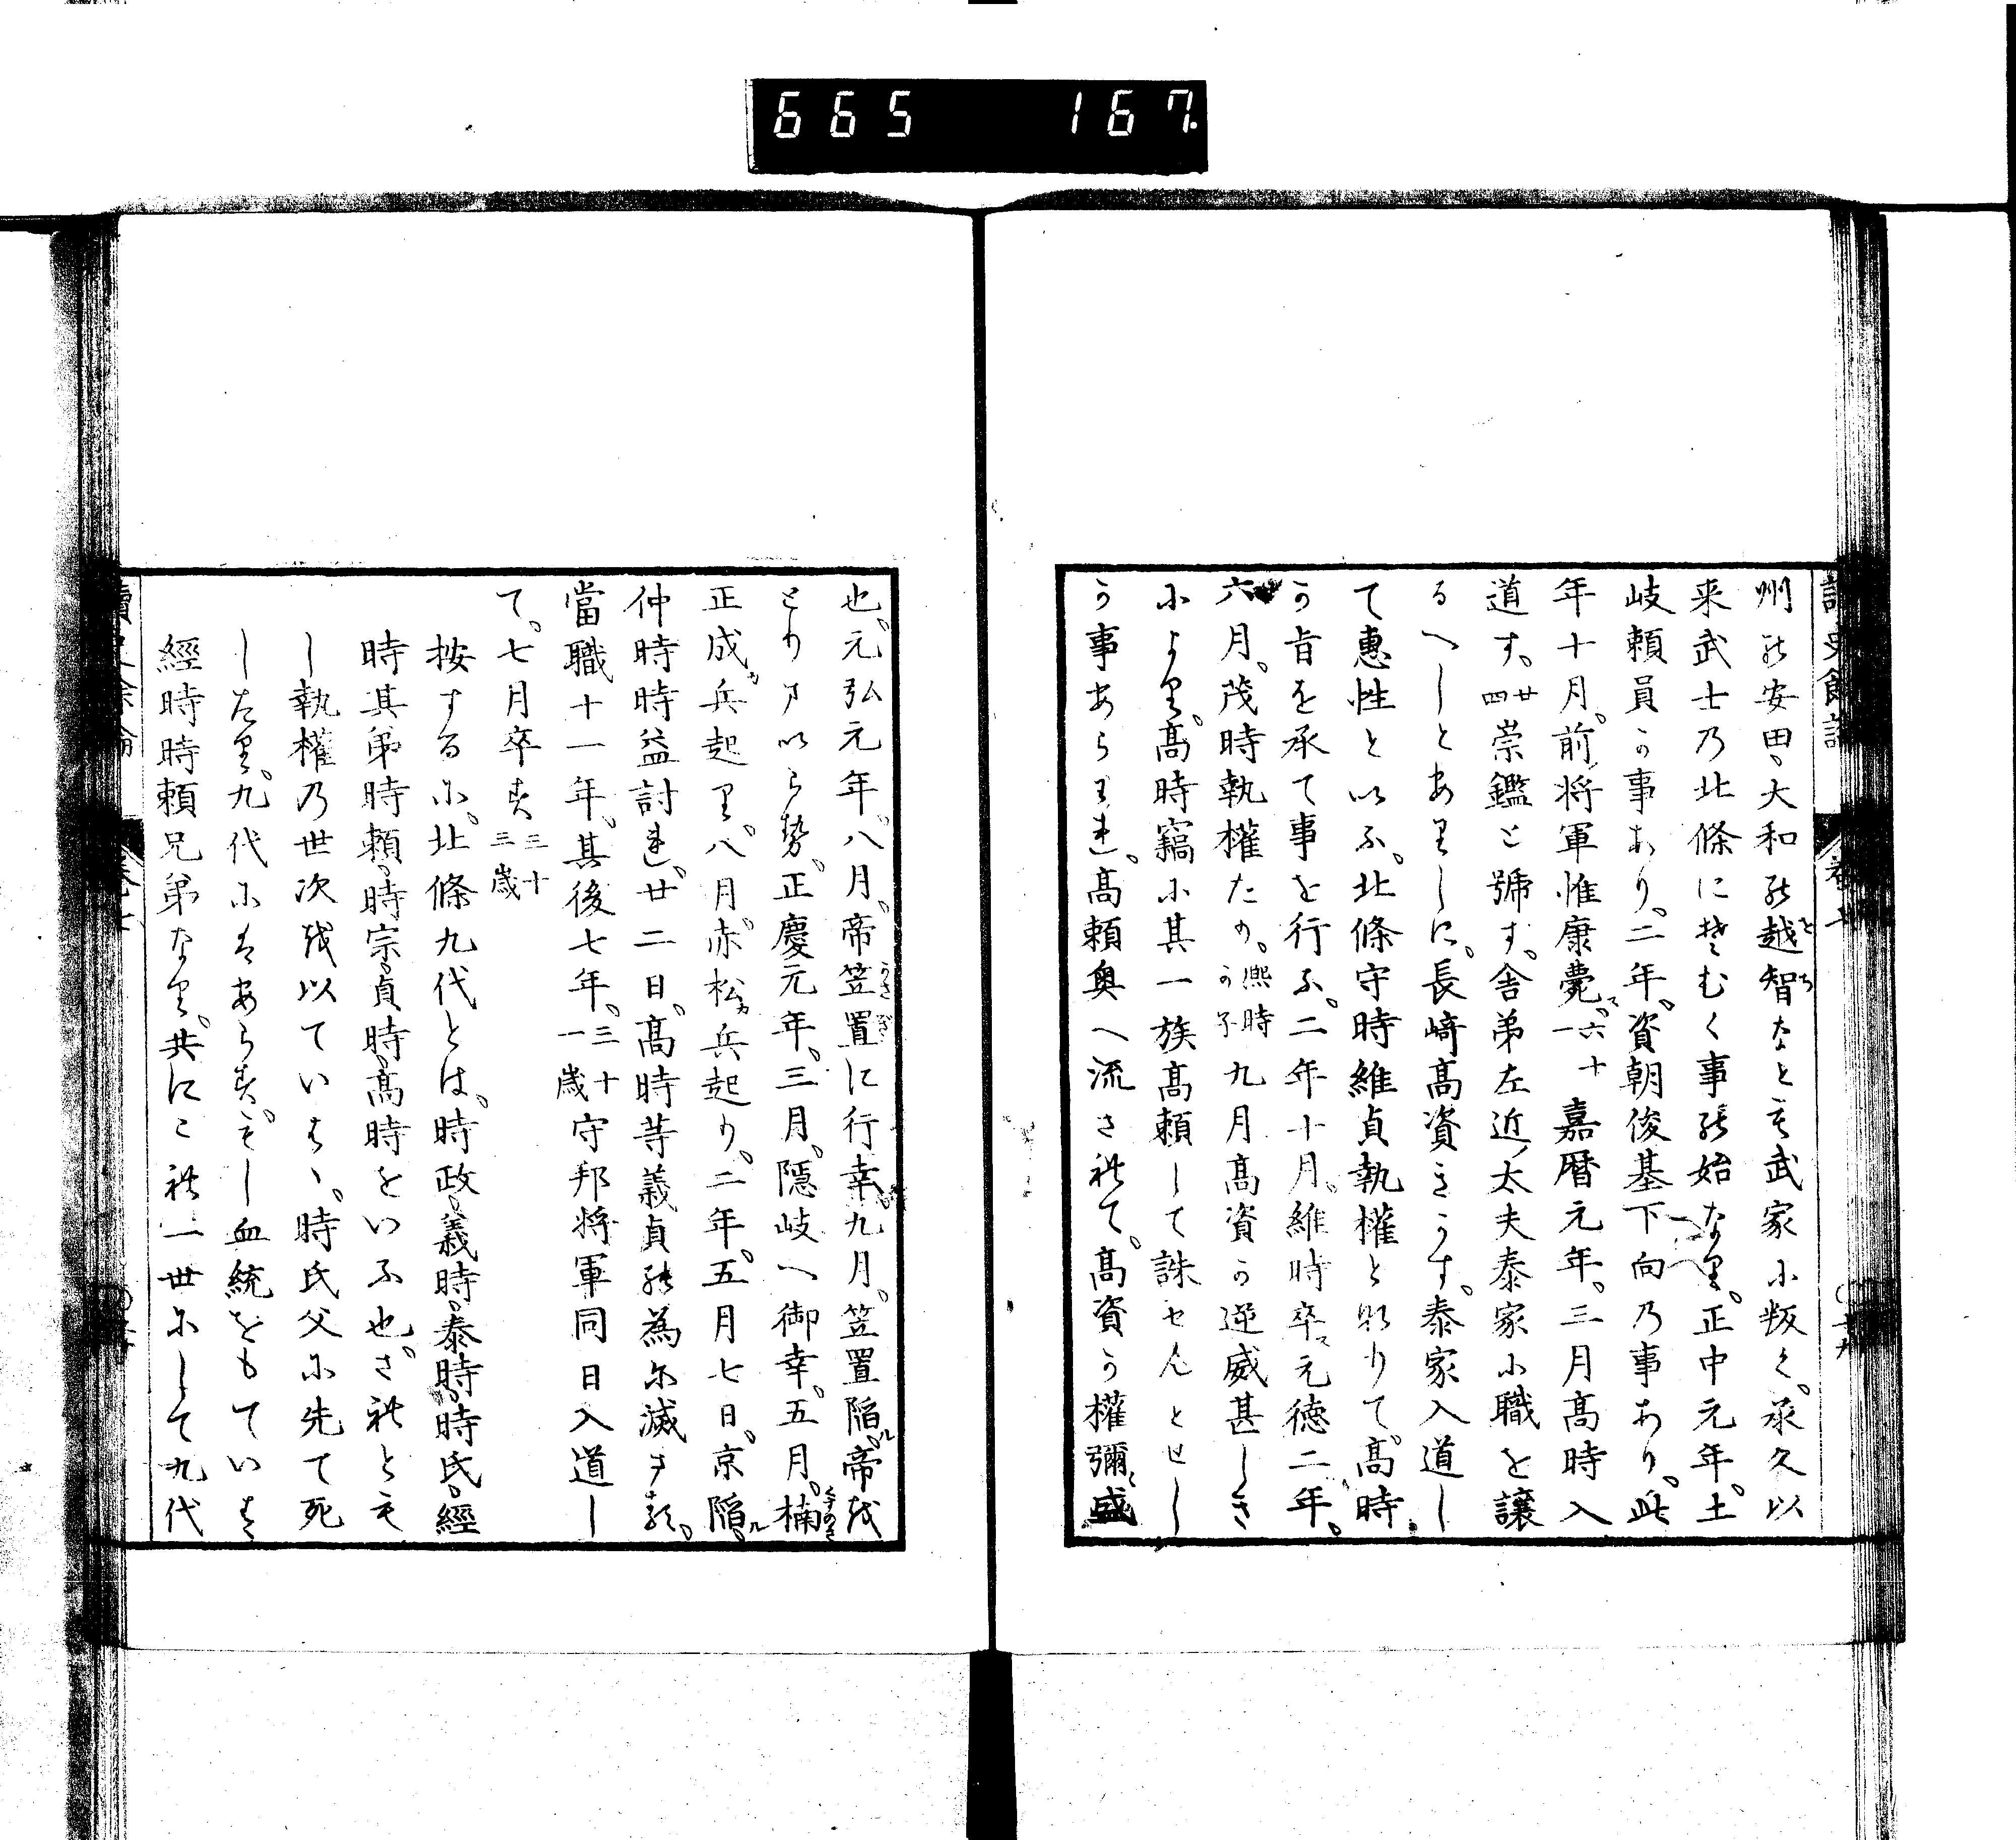 665 167
州の安田、大和の越智なとも武家に叛く。承久以
来武士乃北條にそむく事の始なり。正中元年。土
岐頼員か事あり。二年。資朝俊基下向乃事あり。此
年十月。前将軍惟康薨ス。六十一 嘉暦元年。三月高時入
道す。廿四 崇鑑と號す。舎弟左近太夫泰家に職を譲
るへしとありしに。長崎高資きらす。泰家入道し
て惠性といふ。北條守時維貞執權となりて。高時
か旨を承て事を行ふ。二年十月。維時卒ス 元徳二年。
六月。茂時執權たり。熈時か子 九月高資か逆威甚しき
により。高時竊に其一族高頼して誅せんとせし
か事あらはれ。高頼奥へ流されて。高資か權彌盛
也。元弘元年。八月。帝笠置に行幸。九月。笠置陥ル。帝を
とりまいらせ。正慶元年。三月。隠岐へ御幸。五月。楠
正成カ兵起り。八月。赤松カ兵起り。二年。五月七日。京陥ル。
仲時時益討れ。廿二日。高時等義貞の為に滅さる。
當職十一年。其後七年。三十一歳 守邦将軍同日入道し
て。七月卒す 三十三歳
按するに。北條九代とは。時政。義時。泰時。時氏。經
時其弟時頼。時宗。貞時。高時をいふ也。されとも
し執權乃世次を以ていはゝ。時氏父に先て死
したり。九代にはあらす。もし血統をもていはゝ
經時時頼兄弟なり。共にこれ一世にして九代